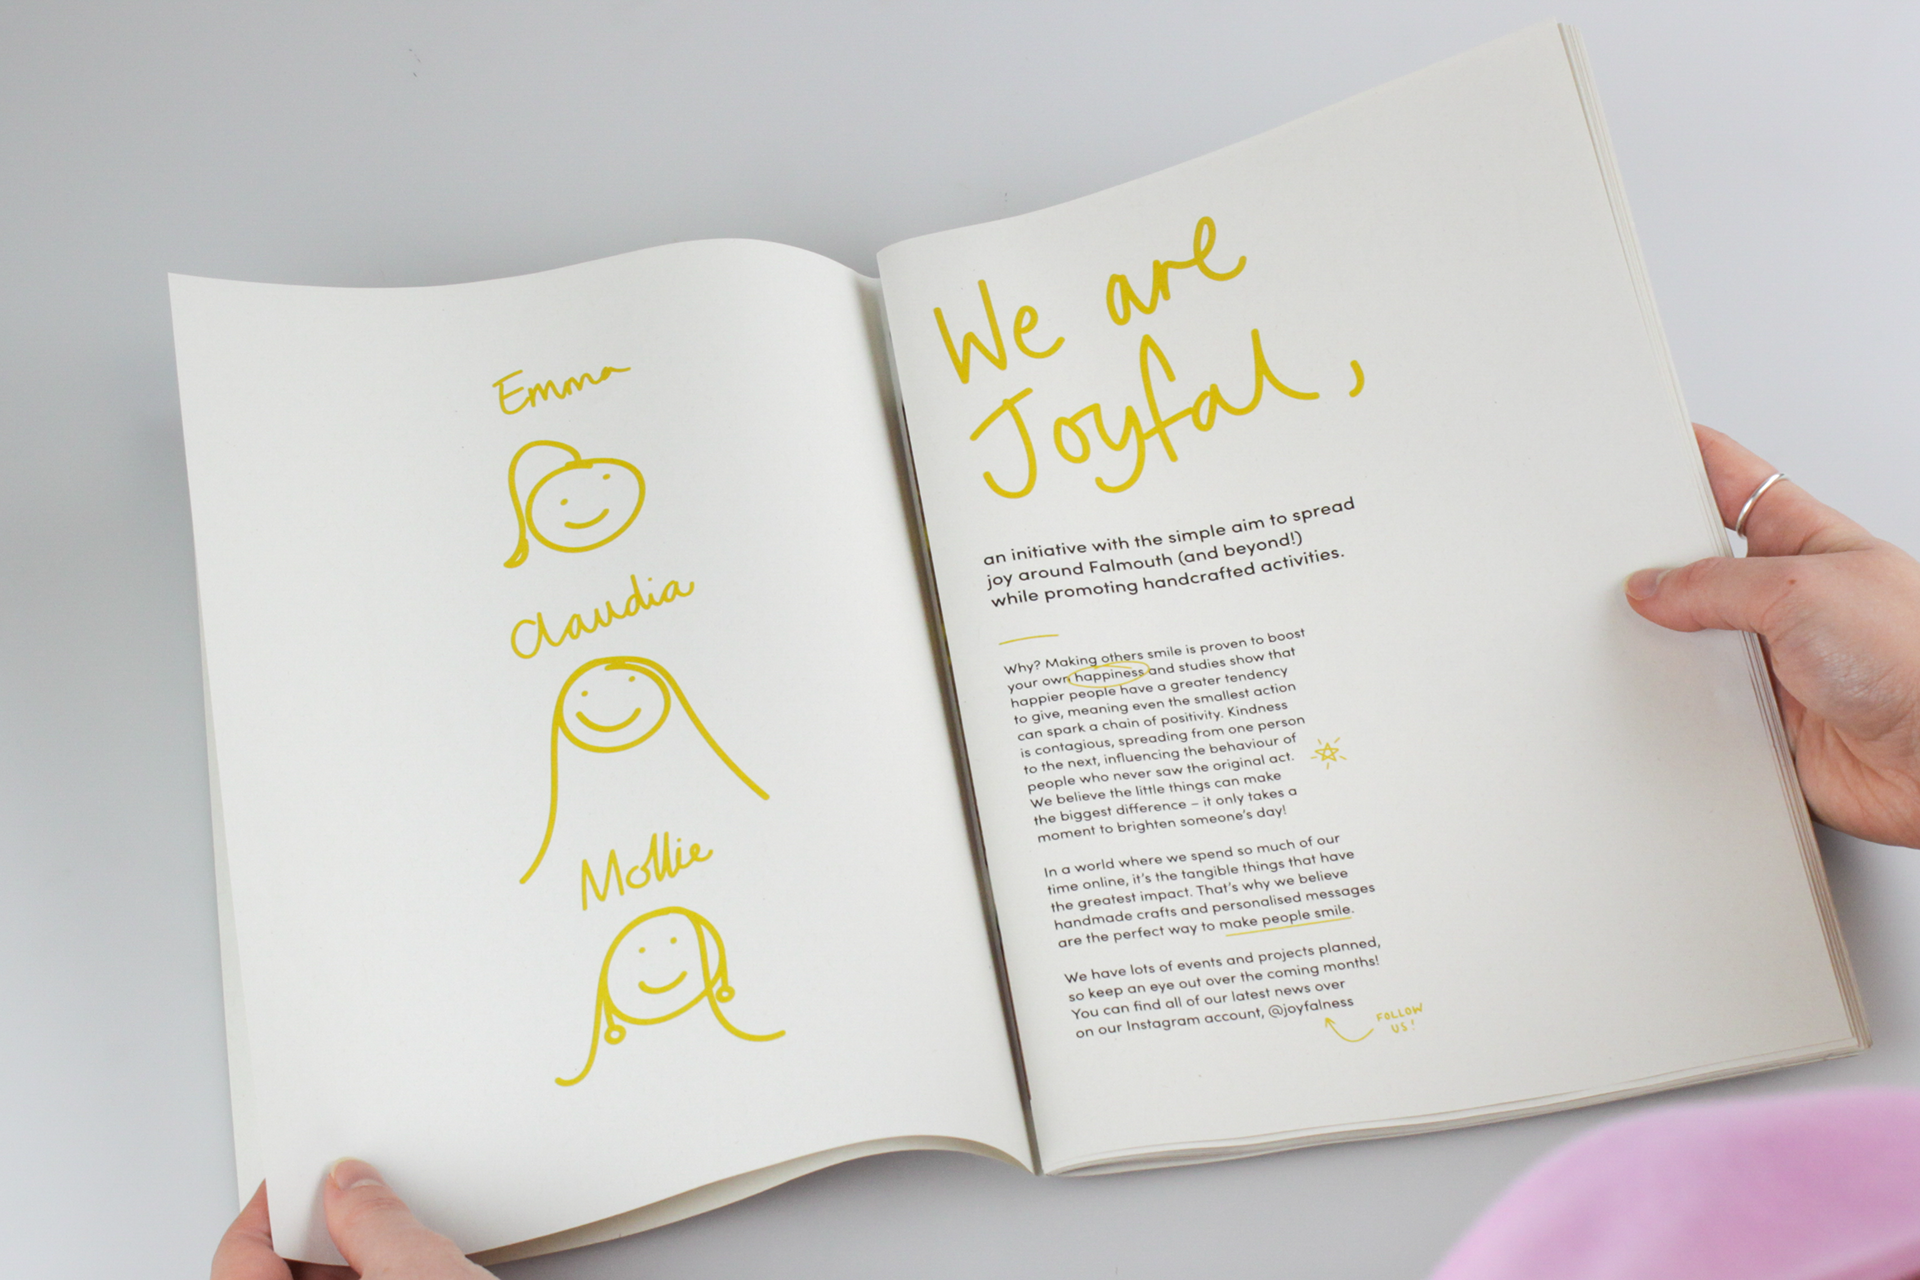 Emma
Claudia
Mollie
We are
Joyfal,
an initiative with the simple aim to spread
joy around Falmouth (and beyond!)
while promoting handcrafted activities.
Why? Making others smile is proven to boost
your own happiness and studies show that
happier people have a greater tendency
to give, meaning even the smallest action
can spark a chain of positivity. Kindness
is contagious, spreading from one person
to the next, influencing the behaviour of
people who never saw the original act.
We believe the little things can make
the biggest difference – it only takes a
moment to brighten someone's day!
In a world where we spend so much of our
time online, it's the tangible things that have
the greatest impact. That's why we believe
handmade crafts and personalised messages
are the perfect way to make people smile.
We have lots of events and projects planned,
so keep an eye out over the coming months!
You can find all of our latest news over
on our Instagram account, @joyfalness
FOLLOW
US!